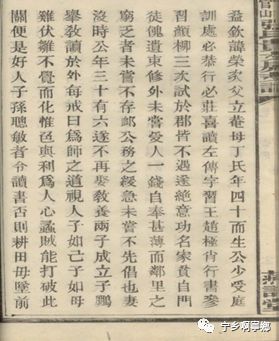 益欽諱榮次父立菴母丁氏年四十而生公少受庭
訓處必恭行必莊喜讀左傳字習王趙極肖行書參
習顏柳三次試於郡皆不遇遂絕意功名家貧自門
徒傀遺束修外未嘗受人一錢自奉甚薄而鄰里之
窮乏者未嘗不存邺公務之緩急未嘗不先倡也妻
沒時公年三十有六遂不再娶教養兩子成立子鸝
舉教讀於外每戒曰爲師之道視人子如己子如母
雞伏雛不覺而化惟色與利爲人心蟊賊能打破此
關便是好人子孫聰敏者令讀書否則耕田毋墜前
宁乡啊寧鄉